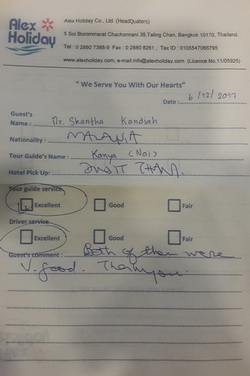 Alex Holiday
Alex Holiday Co., Ltd. (HeadQuaters)
5 Soi Borommarat Chachonnani 39, Taling Chan, Bangkok 10170, Thailand.
Tel : 0 2880 7388-9 Fax : 0 2880 8261 , Tax ID : 0105547066795
www.alexholiday.com, e-mail:info@alexholiday.com (Licence No.11/05925)
" We Serve You With Our Hearts"
Date : 6/12/2017
Guest's
Name : Dr. Skantha Kandiah
Nationality : MALAYSIA
Tour Guide's Name : Kanya (Noi)
Hotel Pick Up:
Tour guide service
Excellent Good Fair
Driver service
Excellent Good Fair
Guest's comment : Both of them were
V. good. Thank you.